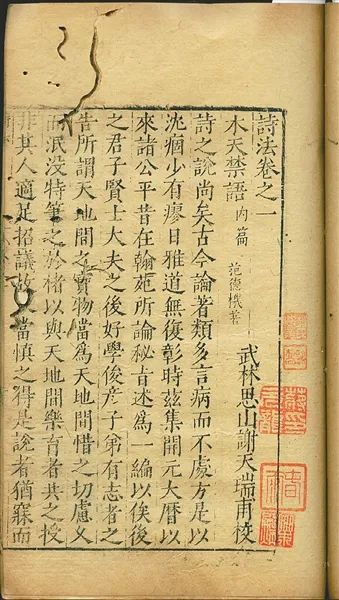 詩法卷之一
武林思山謝天瑞甫校
木天禁語 內篇 范德機著
詩之說尚矣古今論著類多言病而不處方是以
沈痼少有瘳日雅道無復彰時茲集開元大曆以
來諸公平昔在翰苑所論秘旨述爲一編以俟後
之君子賢士大夫之後好學俊彥子弟有志者之
告所謂天地間之寶物當爲天地間惜之切慮久
而泯没特筆之於楮以與天地間樂育者共之授
非其人適足招議故又當慎之得是說者猶寐而